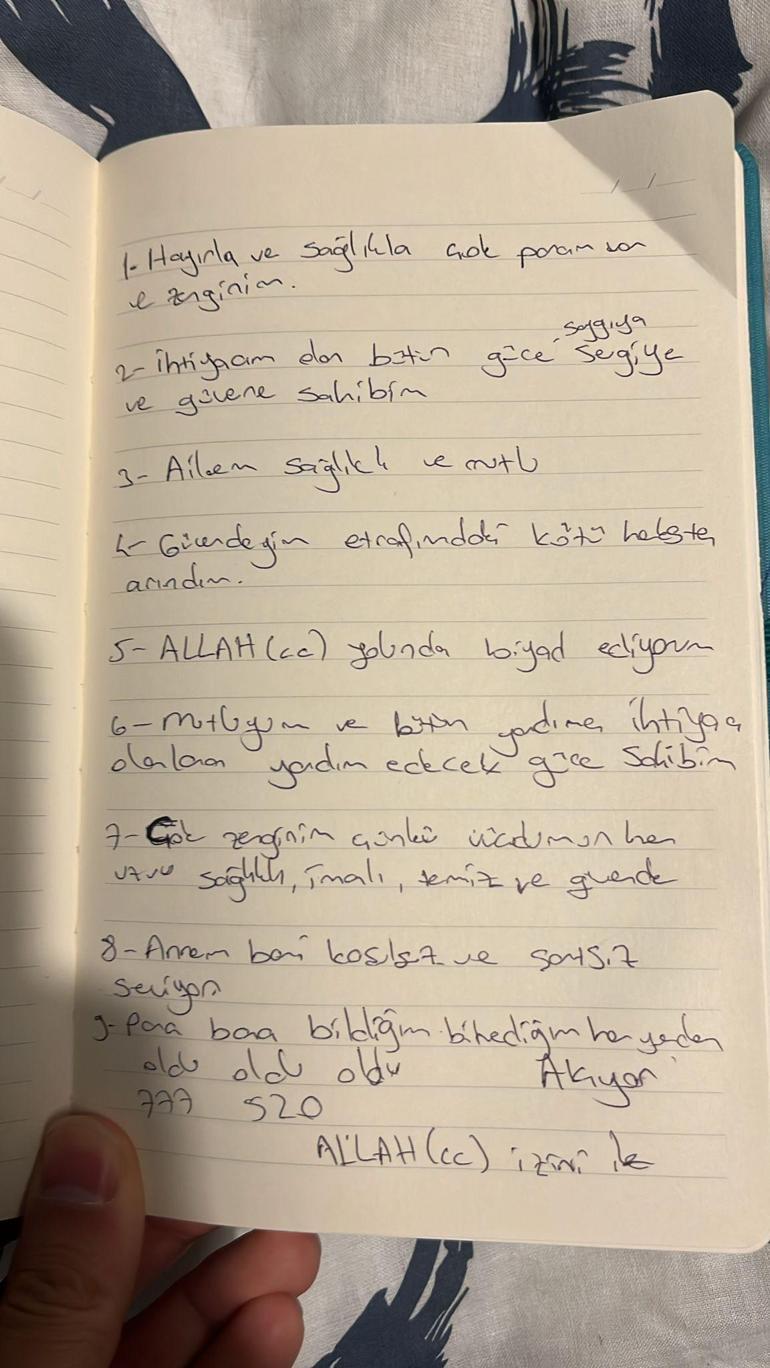 1- Hayırla ve sağlıkla çok param var
ve zenginim.
saygıya
2- ihtiyacım olan bütün güce, segiye
ve güvene sahibim
3- Ailem sağlıklı ve mutlu
4- Güvendeyim etrafımdaki kötü
arındım.
5- ALLAH (cc) yolunda ediyorum
6- mutluyum ve bütün yardıma ihtiyacı
olanlara yardım edecek güce Sahibim
7- Çok zenginim çünkü vücdumun her
uzvu sağlıklı, temiz ve güvende
8- Annem beni ve
seviyor
9- Para bana bildiğim bilmediğim her yerden
oldu oldu oldu Akıyor
777 520
ALLAH (cc) izini ile